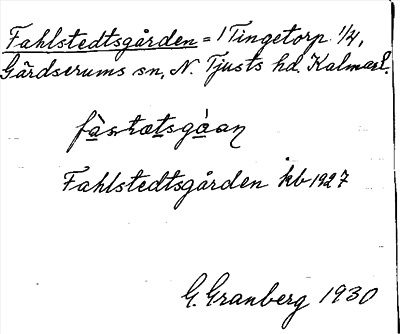 Fahlstedtsgården = 1 Tingetorp 1/4,
Gärdserums sn, N. Tjusts hd. Kalmar l.
Fahlstedtsgården kb 1927
G. Granberg 1930